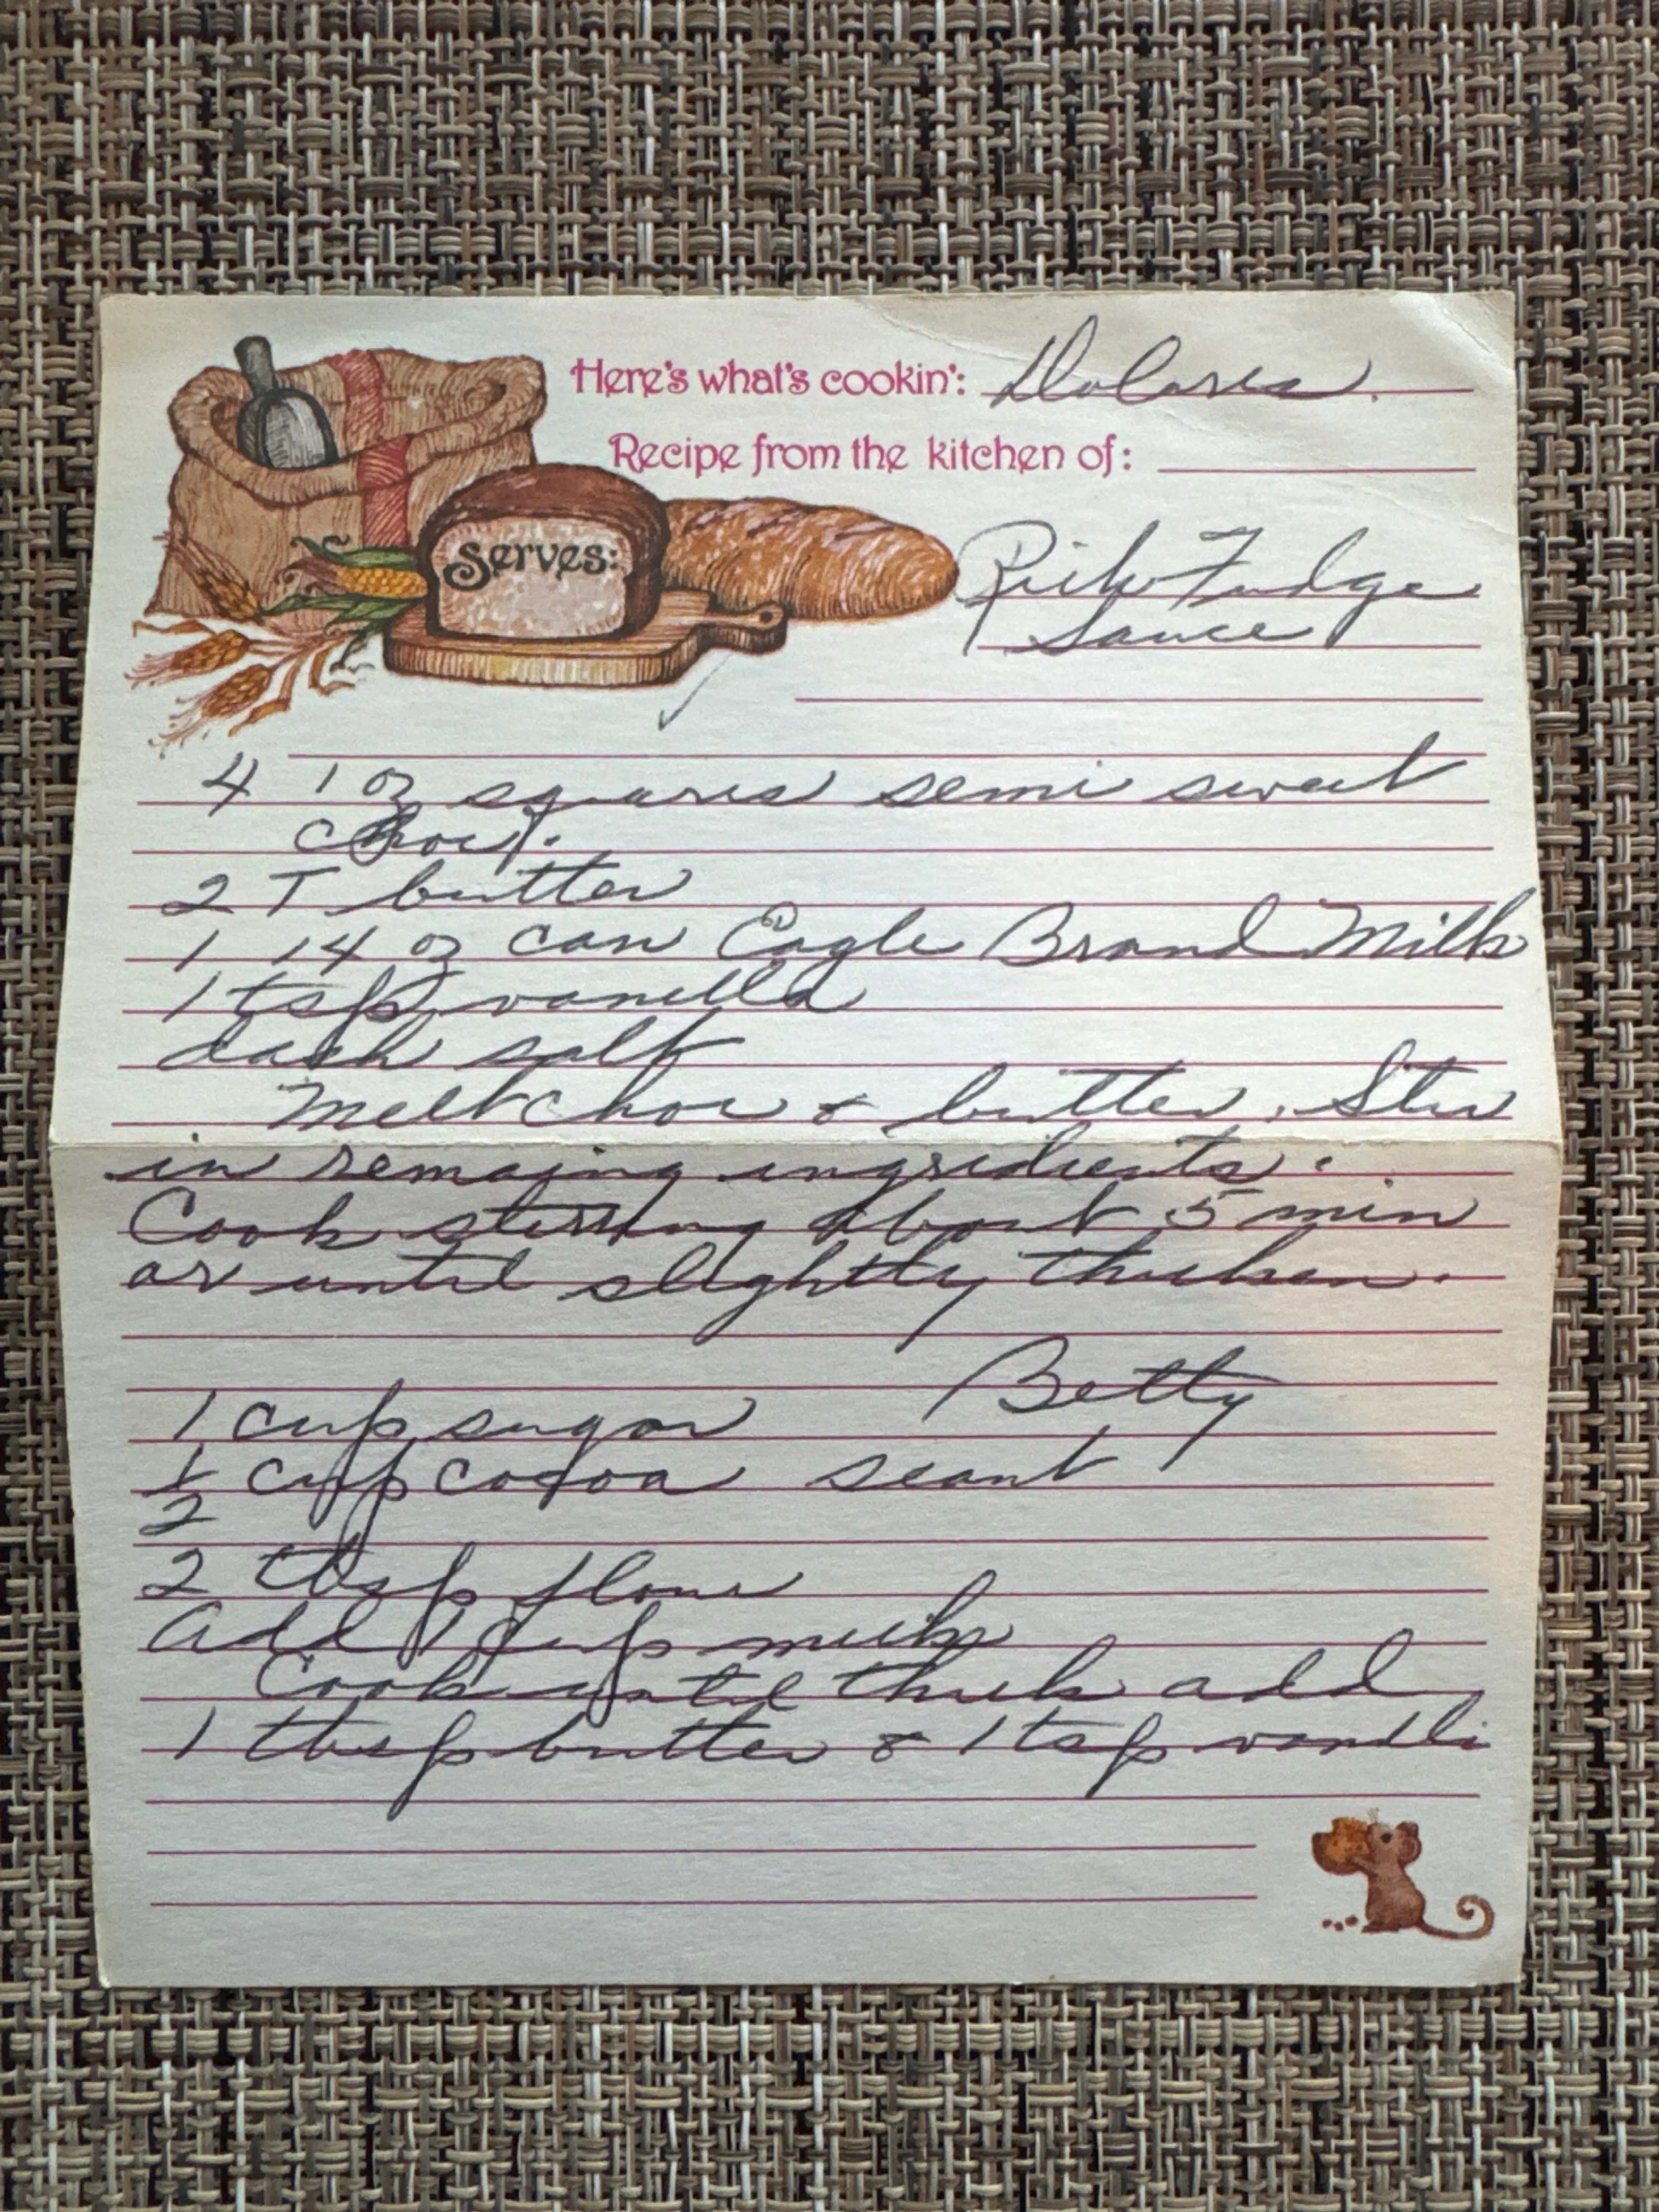 Here's what's cookin': Dolores.
Recipe from the kitchen of:
Serves:
Rich Fudge
Sauce
4 1 oz squares semi sweet
choc.
2 T butter
1 14 oz can Eagle Brand Milk
1 tsp vanilla
dash salt
Melt choc & butter. Stir
in remaing ingredients.
Cook stirring about 5 min
or until slightly thicken.
Betty
1 cup sugar
1/2 cup cocoa scant
2 tbsp flour
add 1 cup milk
Cook until thick add
1 tbsp butter & 1 tsp vanilli